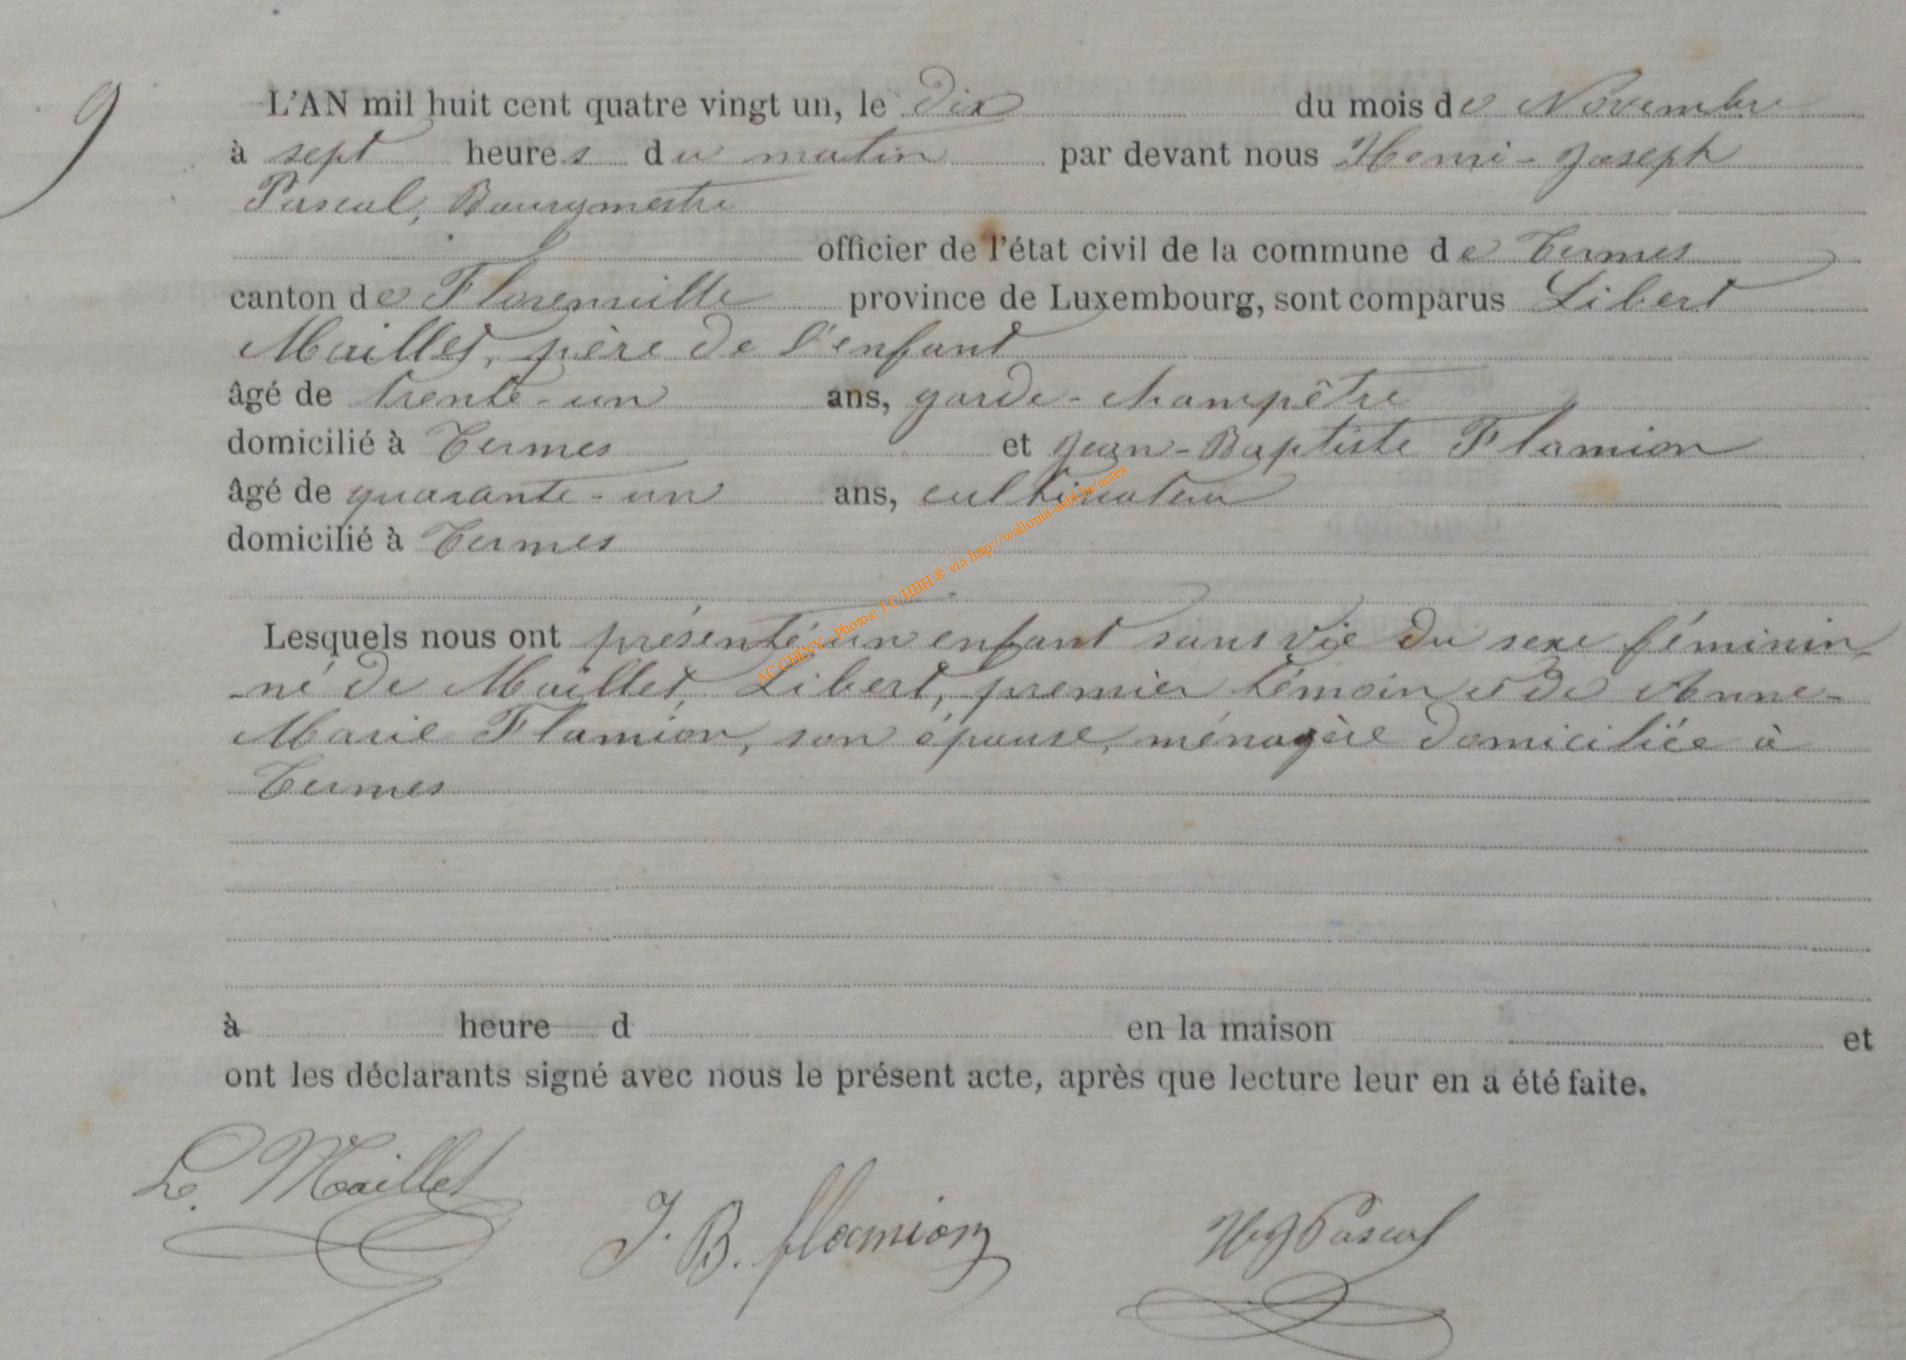 9
L'AN mil huit cent quatre vingt un, le dix du mois de Novembre
à sept heures du matin par devant nous Henri-Joseph
Pascal, Bourgmestre
officier de l'état civil de la commune de Termes
canton de Florenville province de Luxembourg, sont comparus Libert
Maillet, père de l'enfant
âgé de trente-un ans, garde-champêtre
domicilié à Termes et Jean-Baptiste Flamion
âgé de quarante-un ans, cultivateur
domicilié à Termes
AC CHINY - Photos: J.C. HBH ® via http://wallonia-asbl.be/actes
Lesquels nous ont présenté un enfant sans vie du sexe féminin
né de Maillet, Libert, premier témoin et de Anne-
Marie Flamion, son épouse, ménagère domiciliée à
Termes
à heure d en la maison et
ont les déclarants signé avec nous le présent acte, après que lecture leur en a été faite.
L. Maillet
J. B. flamion
HJ Pascal